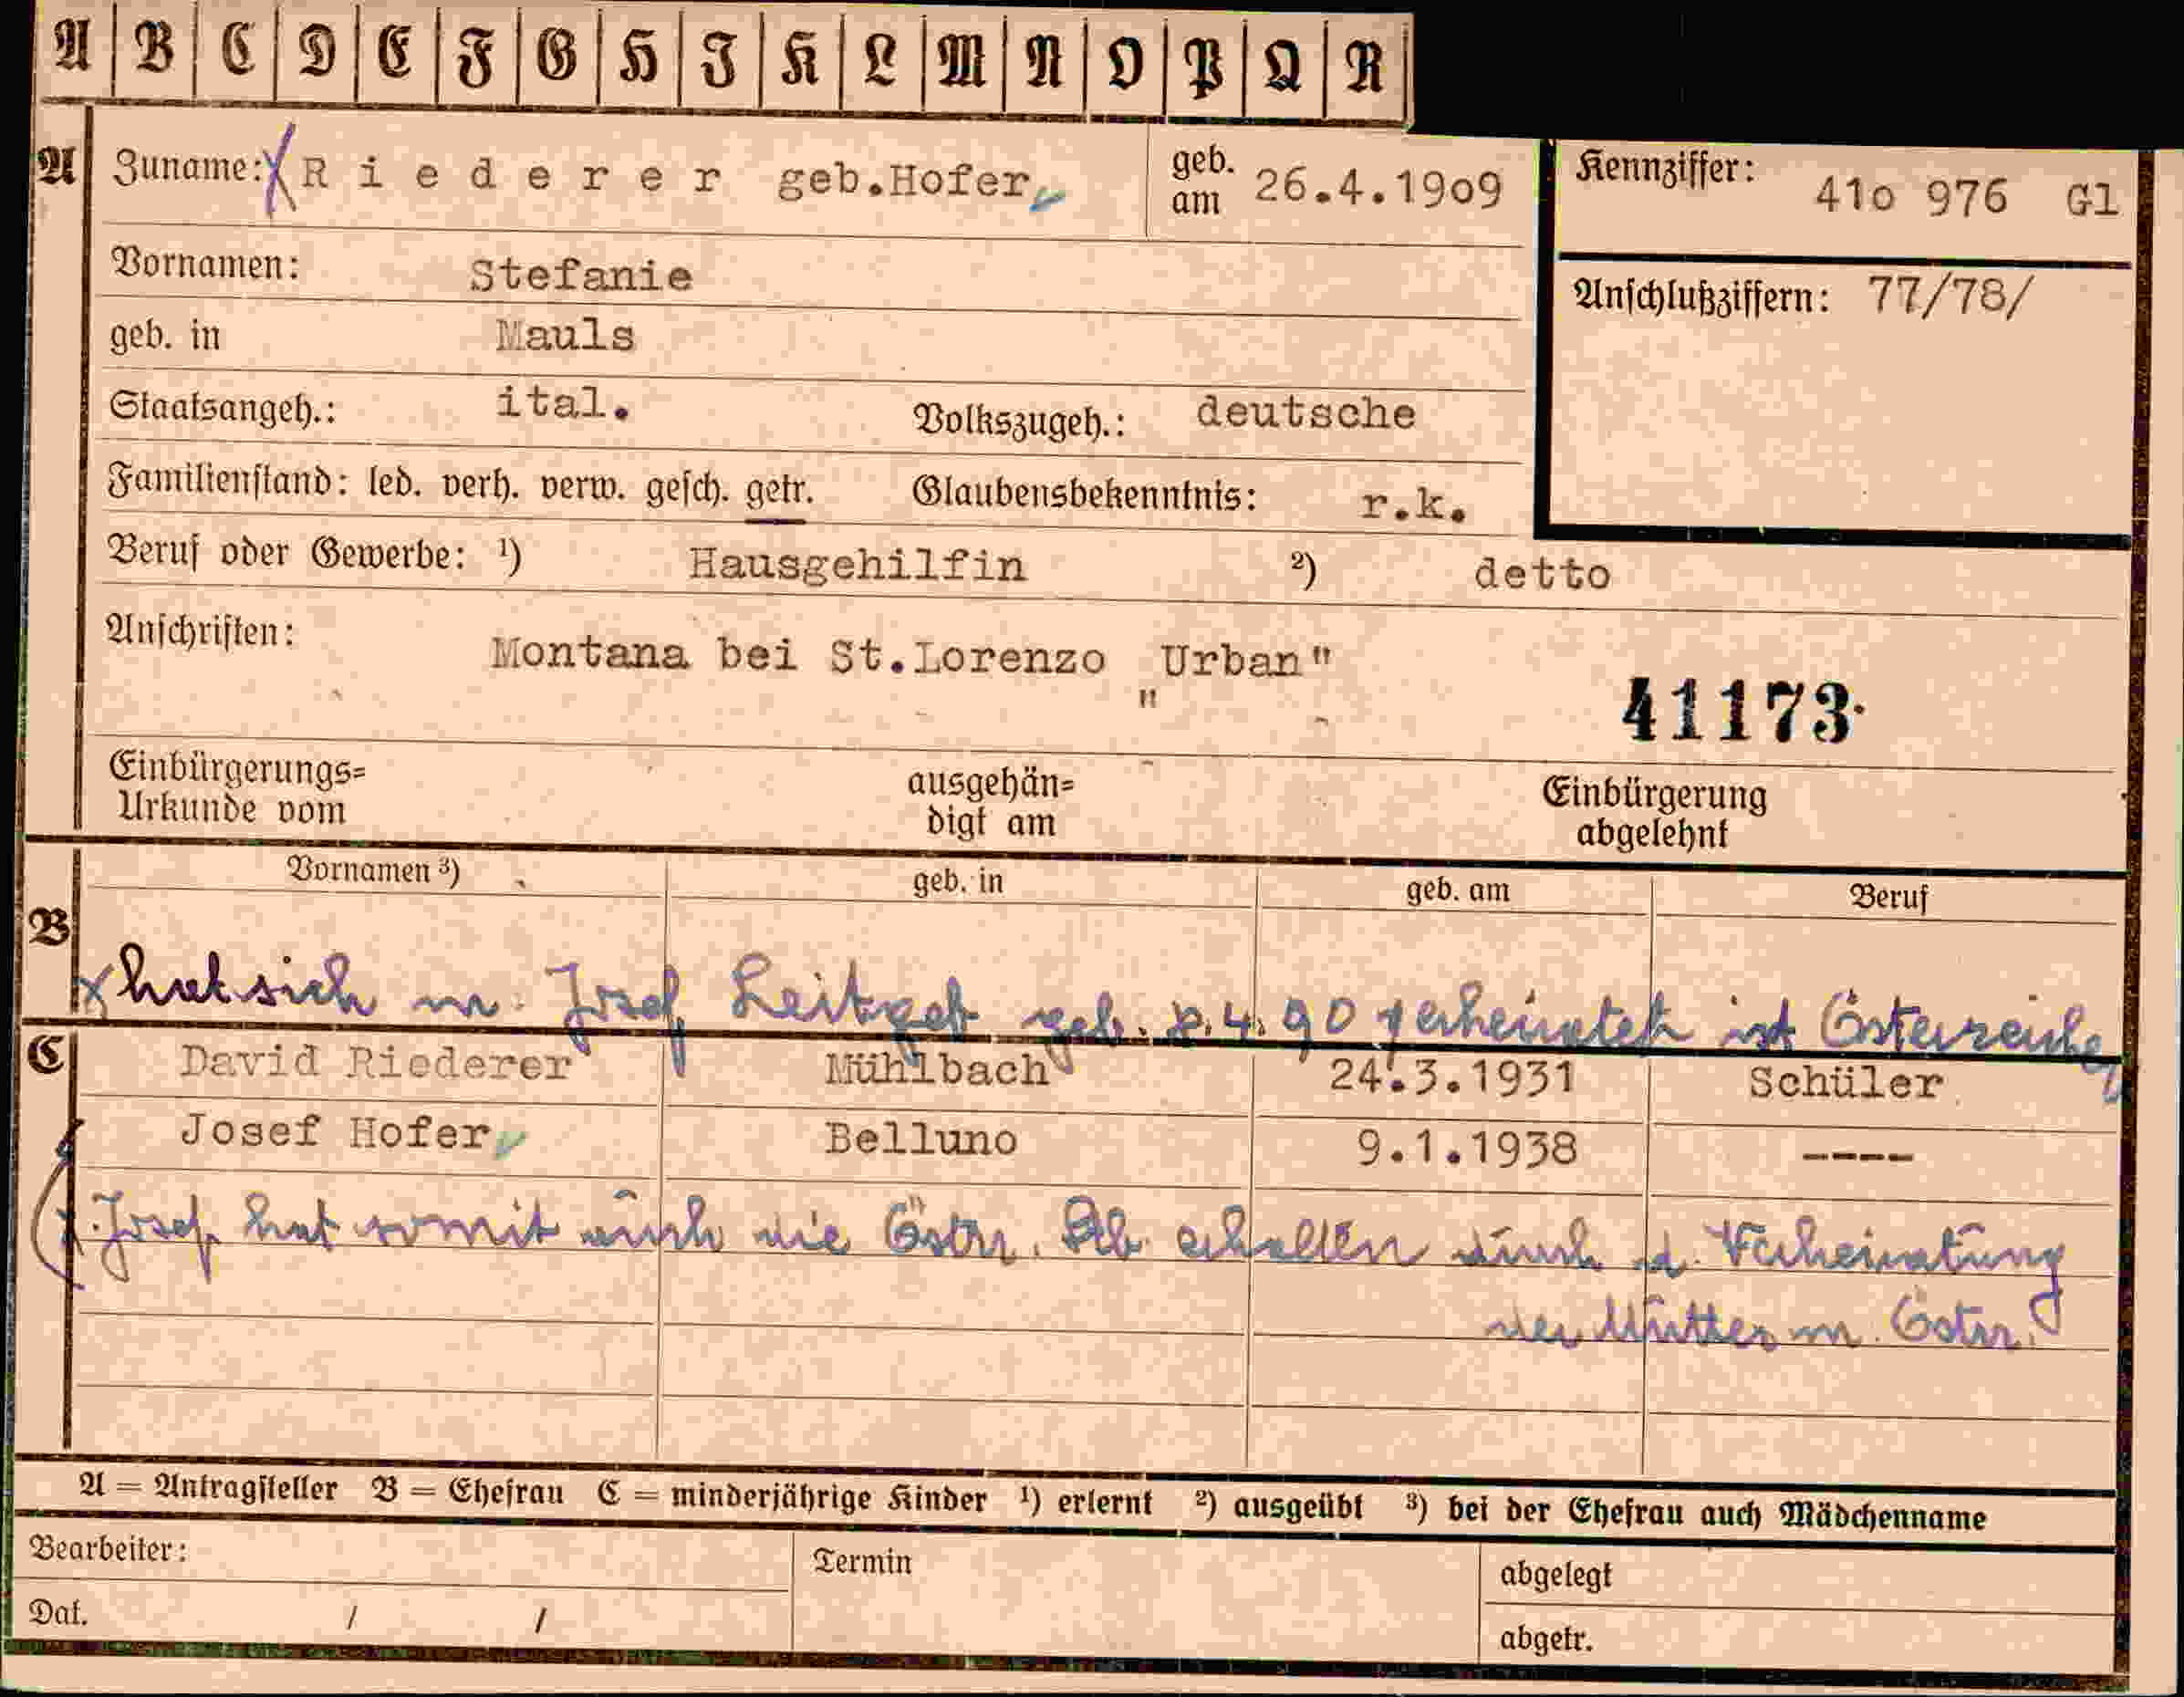 A B C D E F G H I K L M N O P Q R
A Zuname: R i e d e r e r geb.Hofer geb. am 26.4.19o9 Kennziffer: 41o 976 Gl
Vornamen: Stefanie Anschlußziffern: 77/78/
geb. in Mauls
Staatsangeh.: ital. Volkszugeh.: deutsche
Familienstand: led. verh. verw. gesch. getr. Glaubensbekenntnis: r.k.
Beruf oder Gewerbe: ¹) Hausgehilfin ²) detto
Anschriften: Montana bei St.Lorenzo "Urban"
41173
Einbürgerungs=
Urkunde vom
ausgehän=
digt am
Einbürgerung
abgelehnt
B Vornamen ³) geb. in geb. am Beruf
x hat sich m. Josef Leitgeb geb. 4. 90 verheiratet ist Österreicher
C David Riederer Mühlbach 24.3.1931 Schüler
Josef Hofer Belluno 9.1.1938 ----
x. Josef hat somit auch die Östr. Stb. erhalten durch d. Verheiratung
der Mutter m. Östr.
A = Antragsteller B = Ehefrau C = minderjährige Kinder ¹) erlernt ²) ausgeübt ³) bei der Ehefrau auch Mädchenname
Bearbeiter: Termin abgelegt
Dat. / / abgetr.